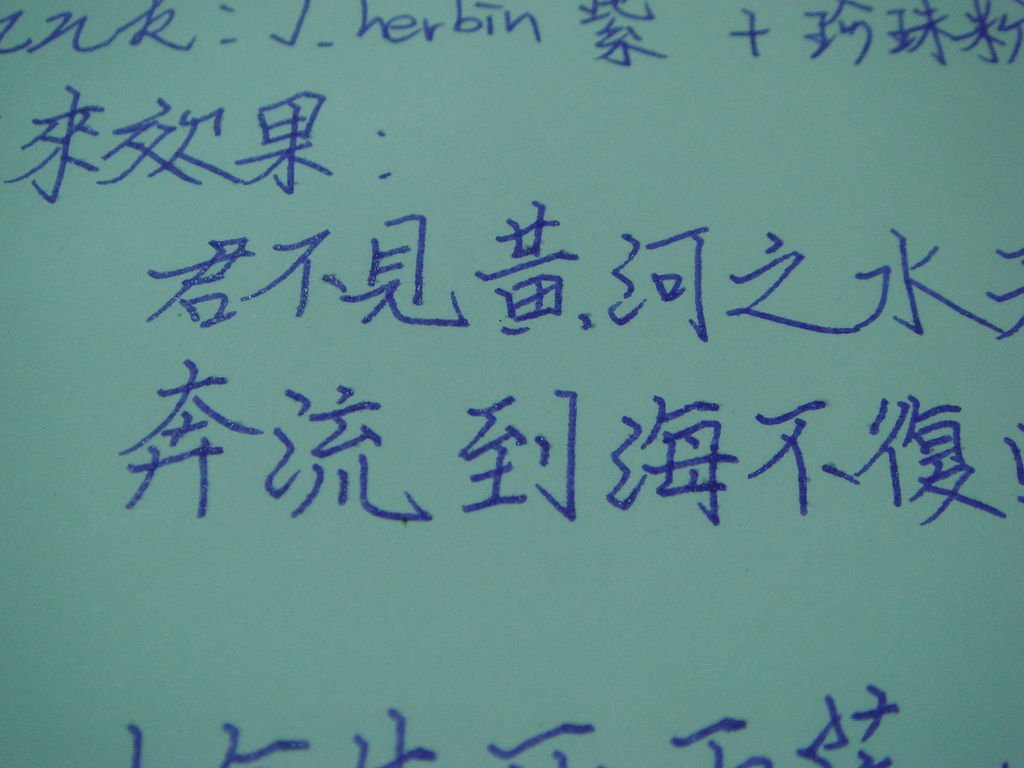 ink: J. herbin 紫 + 珍珠粉
來效果:
君不見黃河之水天
奔流到海不復